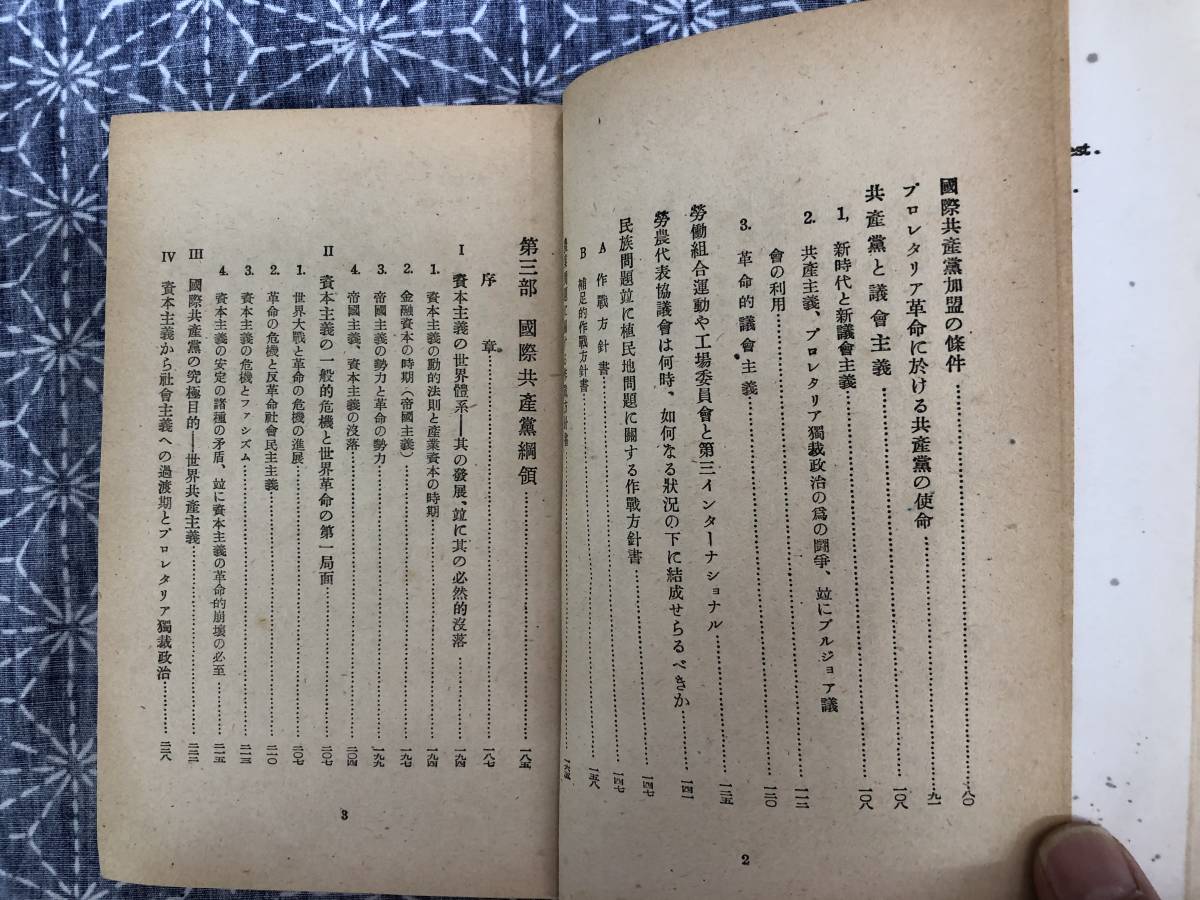 國際共產黨加盟の條件……八〇
プロレタリア革命に於ける共產黨の使命……九一
共產黨と議會主義……一〇八
1. 新時代と新議會主義……一〇八
2. 共產主義、プロレタリア獨裁政治の爲の鬪爭、竝にブルジョア議
會の利用……一一二
3. 革命的議會主義……一二〇
勞働組合運動や工場委員會と第三インターナショナル……一二五
勞農代表協議會は何時、如何なる狀況の下に結成せらるべきか……一四一
民族問題竝に植民地問題に關する作戰方針書……一四七
A 作戰方針書……一四七
B 補足的作戰方針書……一五八
2
第三部 國際共產黨綱領……一八五
序章……一八七
I 資本主義の世界體系――其の發展、竝に其の必然的沒落……一九四
1. 資本主義の動的法則と產業資本の時期……一九四
2. 金融資本の時期(帝國主義)……一九六
3. 帝國主義の勢力と革命の勢力……一九九
4. 帝國主義、資本主義の沒落……二〇四
II 資本主義の一般的危機と世界革命の第一局面……二〇七
1. 世界大戰と革命の危機の進展……二〇七
2. 革命の危機と反革命社會民主主義……二一〇
3. 資本主義の危機とファシズム……二一三
4. 資本主義の安定の諸種の矛盾、竝に資本主義の革命的崩壞の必至……二一五
III 國際共產黨の究極目的――世界共產主義……二二二
IV 資本主義から社會主義への過渡期とプロレタリア獨裁政治……二二八
3